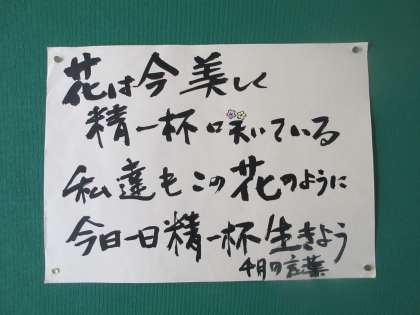 花は今美しく
精一杯咲いている
私達もこの花のように
今日一日精一杯生きよう
4月の言葉